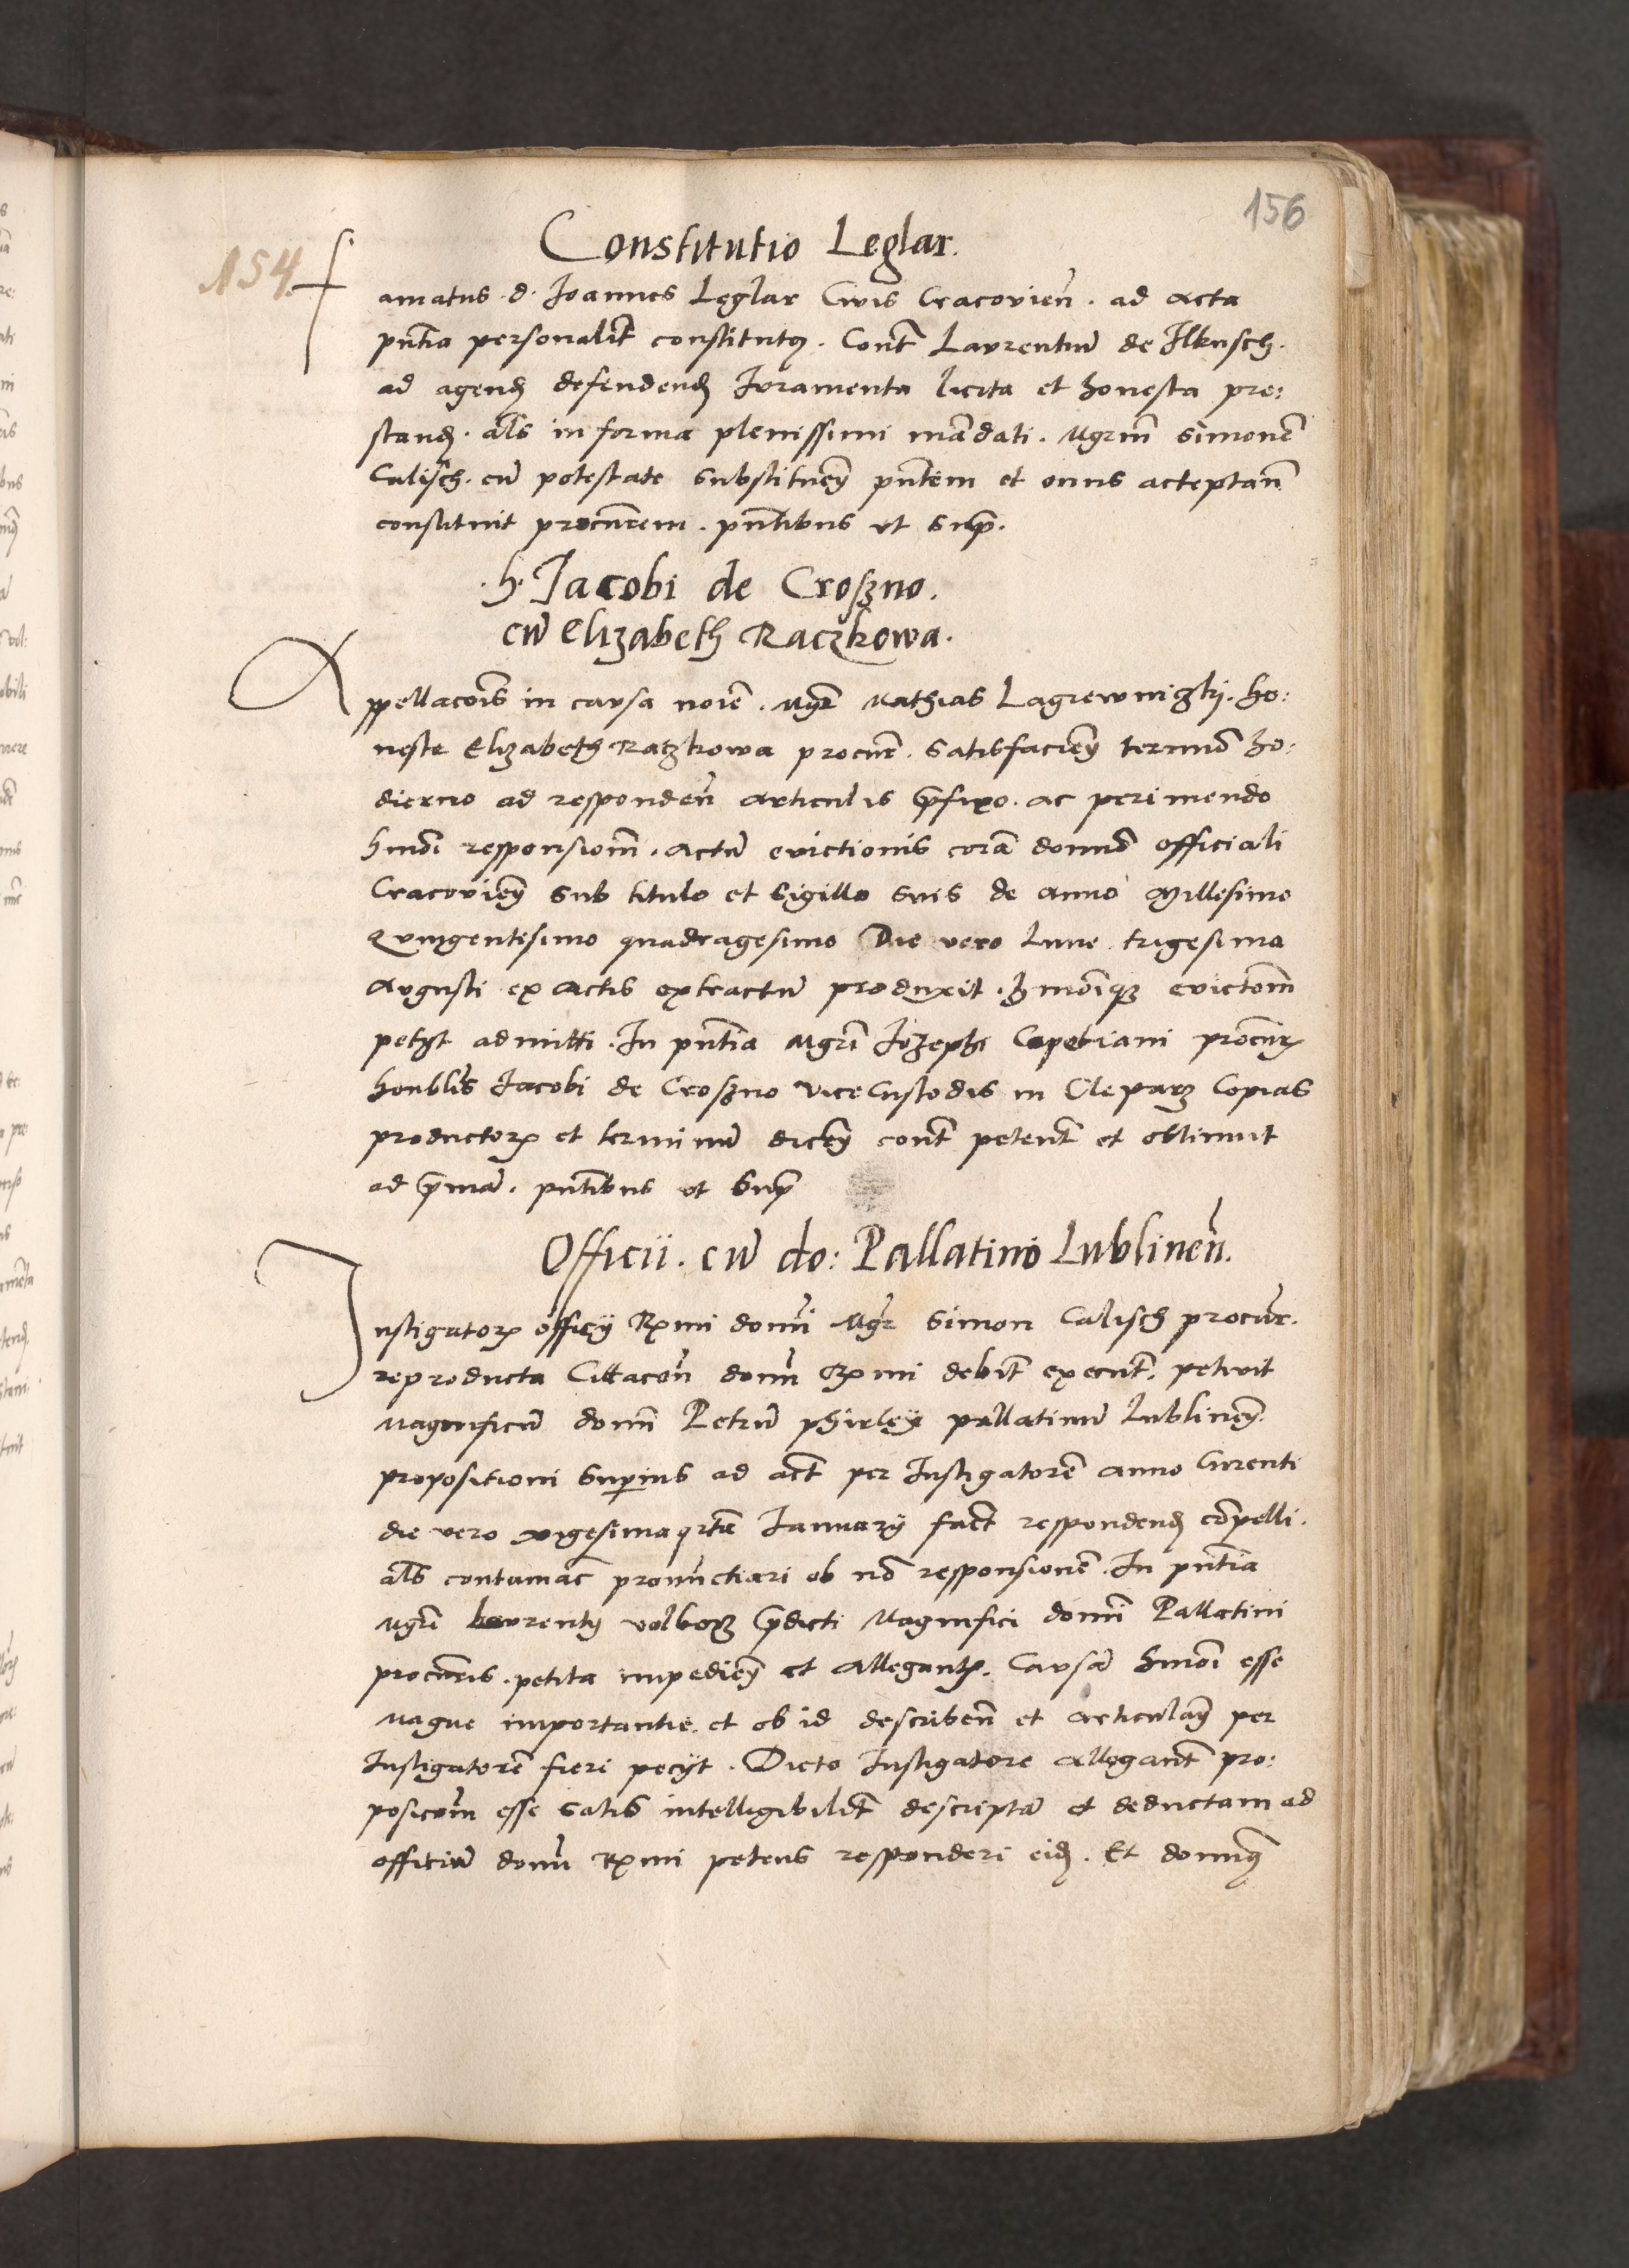 156
154.
Constitutio Leglar.
famatus d. Joannes Leglar Civis Cracovien̄. ad acta
pn̄tia personalit̄ constitutꝯ. Cont̄ Laurentiū de Ilkusch.
ad agend̄ defendend̄ Juramenta licita et honesta pre:
stand̄. als̄ in forma plenissimi mādati. Mgrm̄ Simonē
Calisch. cū potestate substituen̄ pn̄tem et onus acceptan̄
constituit procur̄em. pn̄tibus ut supͣ.
.h. Jacobi de Croszno.
cū Elizabeth Raczkowa.
Appellacōis in causa noīe. Mgr̄ Mathias Lagrewniczkj. ho:
neste Elizabeth Raczkowa procur̄. satisfacien̄ termīo ho:
dierno ad responden̄ articulis p̄fixo. ac perimendo
hmōi responsionē. actū evictionis corā domīo officiali
Cracovien̄ sub titulo et sigillo suis de anno Millesimo
Quingentesimo quadragesimo Die vero Lune trigesima
Augusti ex actis extractū produxit. hmōiqꝫ evictionē
petyt admitti. In pn̄tia Mgrī Jozephi procur̄
honblis̄ Jacobi de Croszno viceCustodis in Cleparz Copias
productorꝝ et terminū dicen̄ cont̄ petent̄ et obtinuit
ad p̄mā. pn̄tibus ut supͣ
Officii. cū do: Pallatino Lublinen̄.
Instigatorꝝ officij Rx̄mi domīi Mgr̄ Simon Calisch procur̄.
reproducta Cittacōn̄ domīi Rx̄mi debit̄ execut̄. petivit
Magnificū domī Petrū phirley pallatinū Lublinen̄.
propositioni superius ad act̄ per Instigatorē anno Curenti
die vero vigesima qrta Januarij fact̄ respondend̄ cōpelli.
als̄ contumac̄ pronūctiari ob nō responsionē. In pn̄tia
Mgrī Laurentij volborz p̄dicti Magnifici domī Pallatini
procur̄is. petita impedien̄ et allegantꝭ. Causā hmōi esse
magne importantie. et ob id describen̄ et articulan̄ per
Instigatorē fieri pecijt. Dicto Instigatore allegant̄ pro:
posicōm esse satis intelligibilit̄ descriptā et deductam ad
officiū domīi Rx̄mi petens responderi eid̄. Et domīꝯ